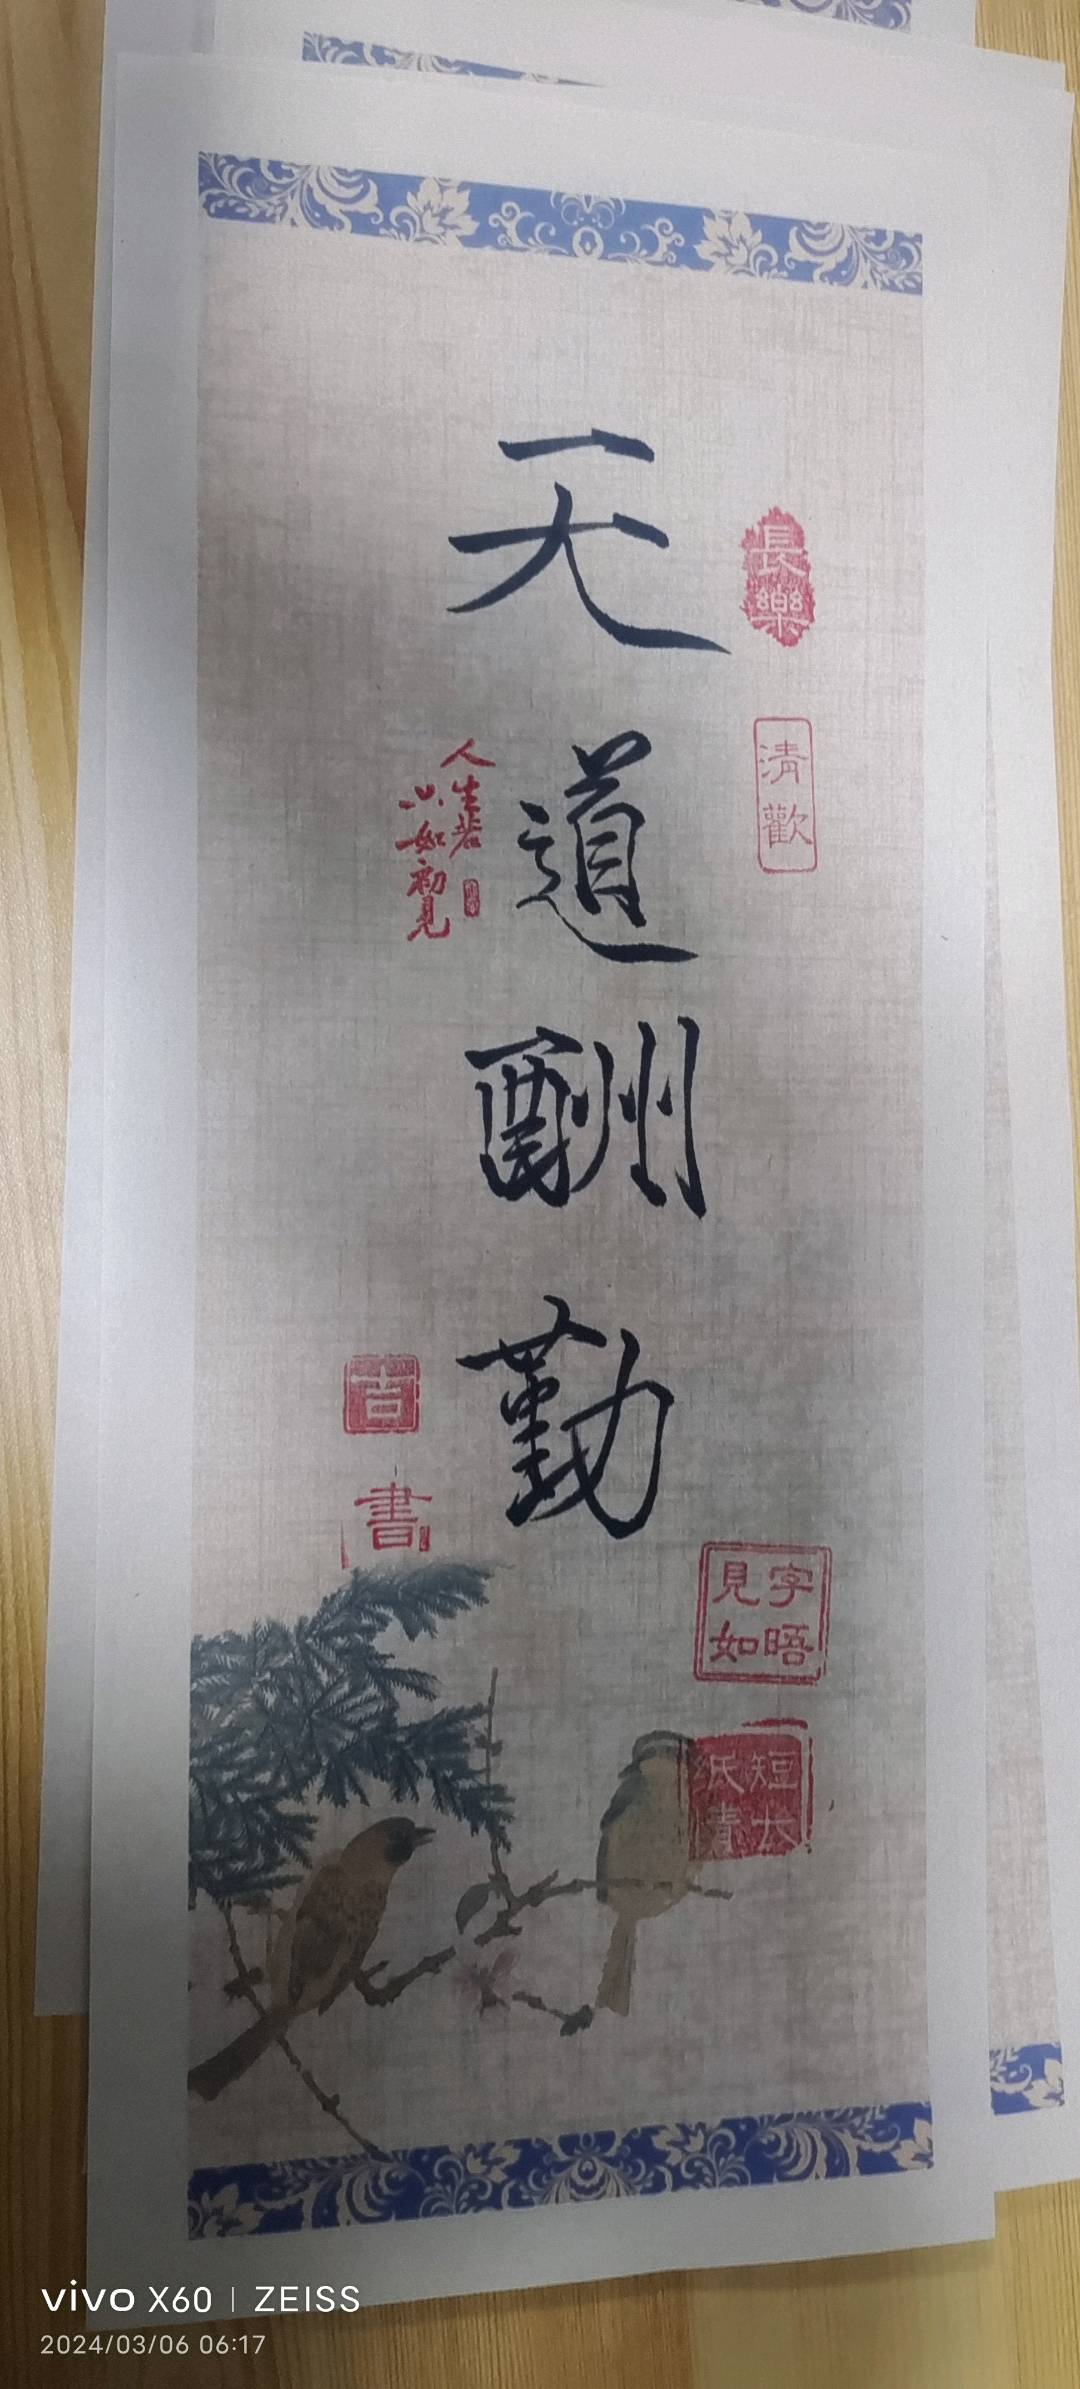 天道酬勤
長樂
清歡
人生若
只如初見
吉
書
字晤
見如
短
紙情
vivo X60 | ZEISS
2024/03/06 06:17